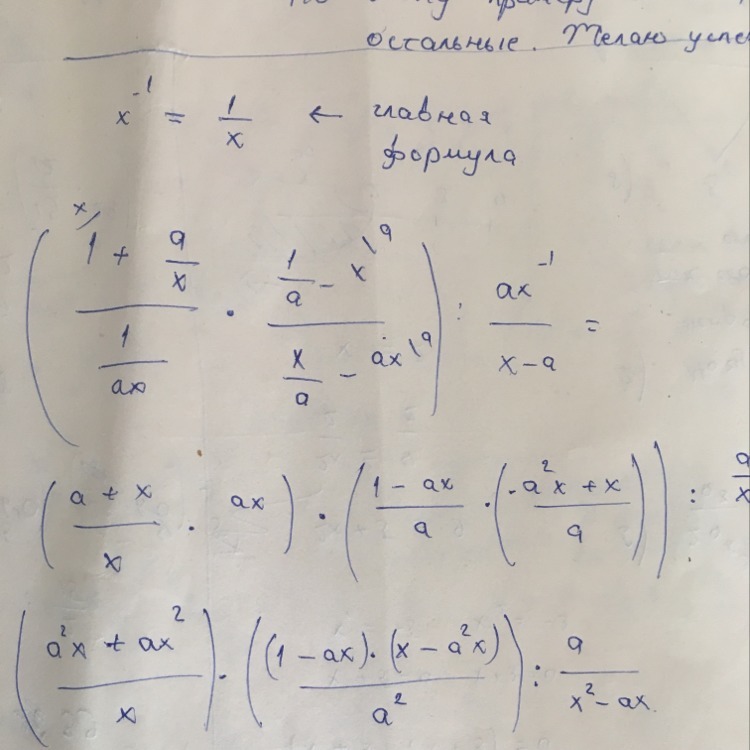 примеру
остальные. Желаю успе
x⁻¹ = 1/x ← главная
формула
( (1 + a/x)/(1/ax) · (1/a - x)/(x/a - ax) ) : ax⁻¹/(x-a) =
( (a + x)/x · ax ) · ( (1 - ax)/a · ( (-a²x + x)/a ) ) : a/x
( (a²x + ax²)/x ) · ( ((1 - ax)·(x - a²x))/a² ) : a/(x² - ax)